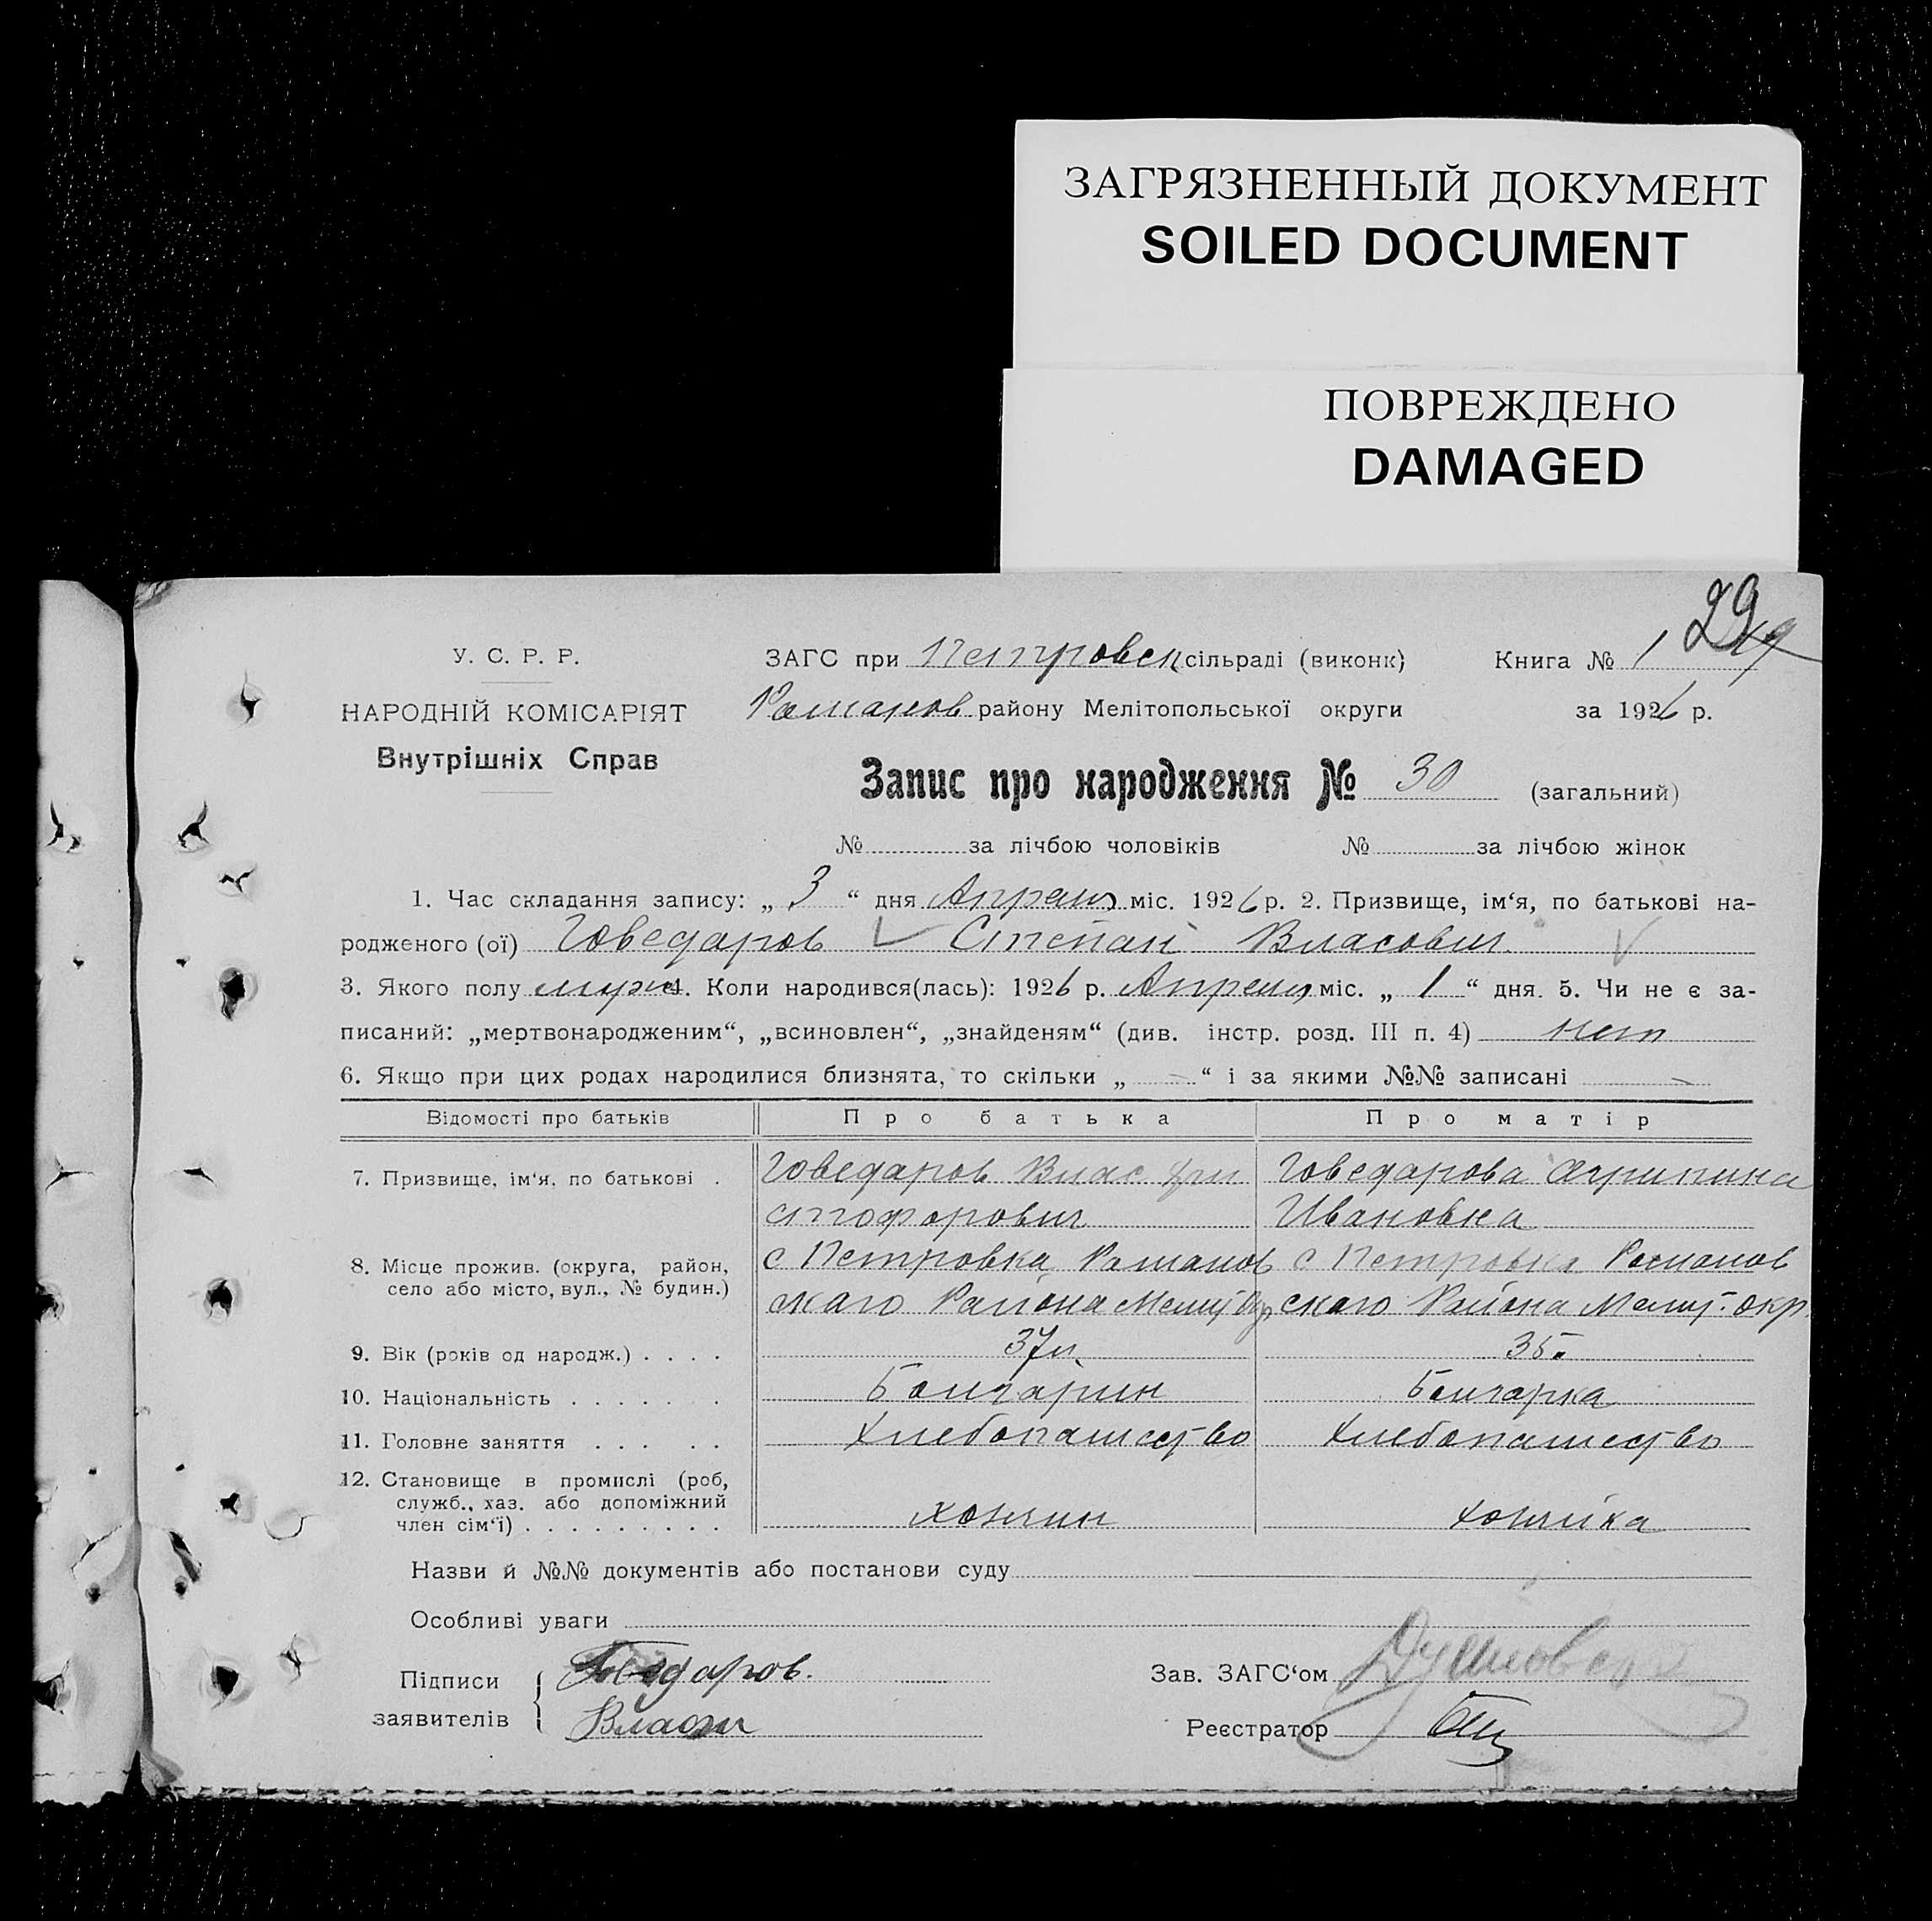 ЗАГРЯЗНЕННЫЙ ДОКУМЕНТ
SOILED DOCUMENT
ПОВРЕЖДЕНО
DAMAGED
29
У. С. Р. Р.
НАРОДНІЙ КОМІСАРІЯТ
Внутрішніх Справ
ЗАГС при Петровск сільраді (виконк) Книга № 1
Романов району Мелітопольської округи за 1926 р.
Запис про народження № 30 (загальний)
№ за лічбою чоловіків № за лічбою жінок
1. Час складання запису: „ 3 “ дня Апреля міс. 1926 р. 2. Призвище, ім‘я, по батькові на-
родженого (ої) Говедаров Степан Власович
3. Якого полу муж 4. Коли народився(лась): 1926 р. Апреля міс. „ 1 “ дня. 5. Чи не є за-
писаний: „мертвонародженим“, „всиновлен“, „знайденям“ (див. інстр. розд. III п. 4) нет
6. Якщо при цих родах народилися близнята, то скільки „ – “ і за якими №№ записані –
Відомості про батьків Про батька Про матір
7. Призвище, ім‘я, по батькові . Говедаров Влас Хри Говедарова Агрипина
стофорович Ивановна
8. Місце прожив. (округа, район, с Петровка Романов с Петровка Романов
село або місто, вул., № будин.) скаго Района Мелит Окр скаго Района Мелит. окр.
9. Вік (років од народж.) . . . . 37 л. 35
10. Національність . . . . . . . Болгарин Болгарка
11. Головне заняття . . . . . Хлебопашество Хлебопашество
12. Становище в промислі (роб,
служб., хаз. або допоміжний
член сім‘ї) . . . . . . . . . хозяин хозяйка
Назви й №№ документів або постанови суду
Особливі уваги
Підписи Говедаров. Зав. ЗАГС‘ом
заявителів Влас Реєстратор